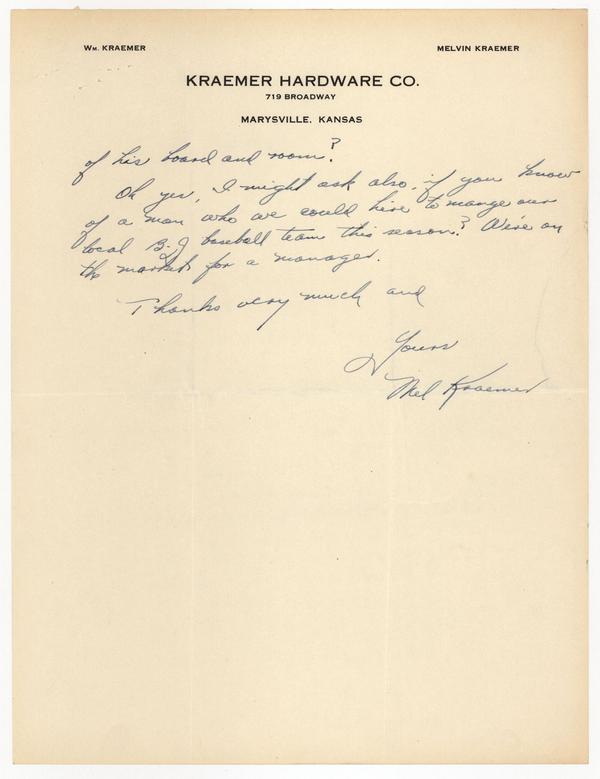 Wm. KRAEMER
MELVIN KRAEMER
KRAEMER HARDWARE CO.
719 BROADWAY
MARYSVILLE, KANSAS
of his board and room?
Oh yes, I might ask also, if you know
of a man who we could hire to mange our
local B.J baseball team this season? We're on
the market for a manager.
Thanks very much and
Yours
Mel Kraemer